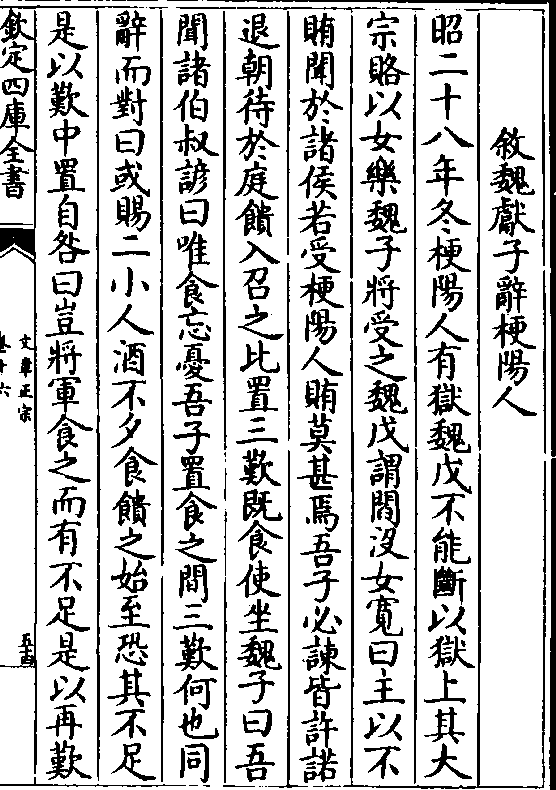 敘魏獻子辭梗陽人
昭二十八年冬梗陽人有獄魏戊不能斷以獄上其大
宗賂以女樂魏子將受之魏戊謂閻沒女寬曰主以不
賄聞於諸侯若受梗陽人賄莫甚焉吾子必諫皆許諾
退朝待於庭饋入召之比置三歎既食使坐魏子曰吾
聞諸伯叔諺曰唯食忘憂吾子置食之間三歎何也同
辭而對曰或賜二小人酒不夕食饋之始至恐其不足
是以歎中置自咎曰豈將軍食之而有不足是以再歎
欽定四庫全書
文章正宗
卷十六
五十四